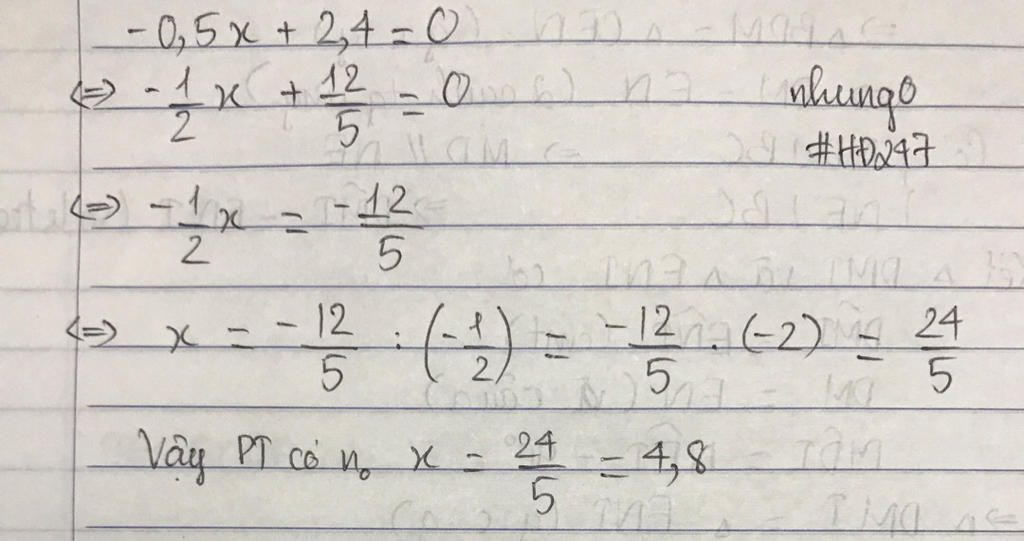 -0,5x + 2,4 = 0
⇔ -1/2 x + 12/5 = 0
nhung0
#HĐ247
⇔ -1/2 x = -12/5
⇔ x = -12/5 : (-1/2) = -12/5 . (-2) = 24/5
Vậy PT có n₀ x = 24/5 = 4,8